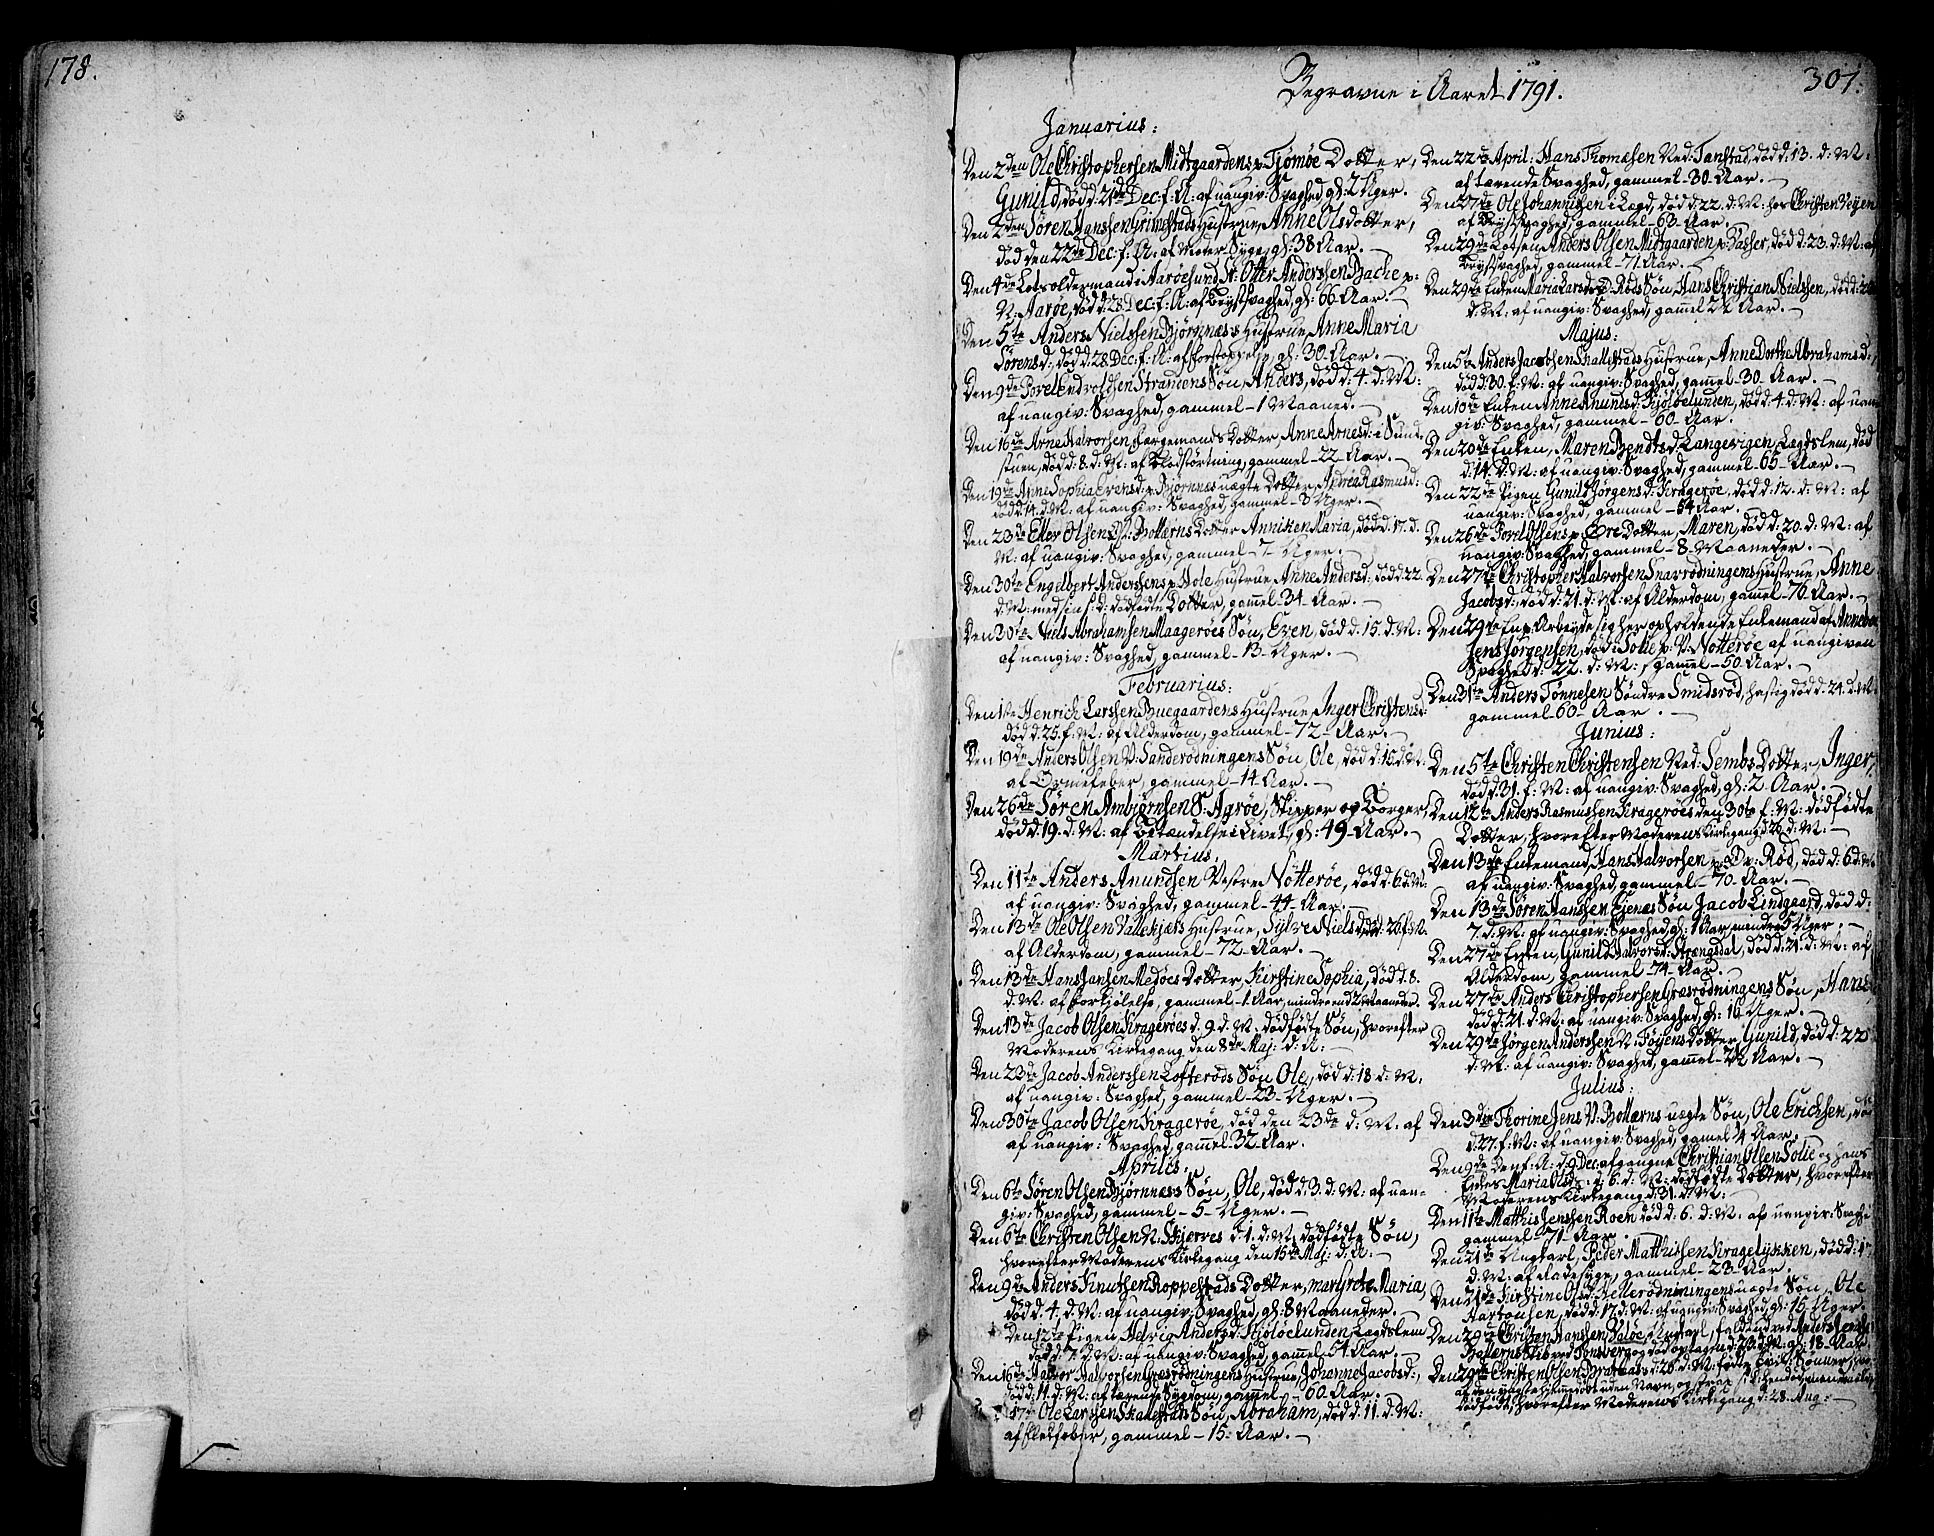 178.
307.
Begravne i Aaret 1791.
Januarius:
Den 2den Ole Christophersen Midtgaardens p: Tjømøe Dotter,
Gunild, død d. 21de Dec: f: A: af uangiv: Svaghed, gl: 2 Uger.
Den 2den Søren Hanssen Grimestads Hustrue, Anne Olsdotter,
død den 22de Dec: f: A: af Moder Syge, gl: 38 Aar.
Den 4de Lodsoldermand i Aarøesund Sr: Otter Anderssen Bache p:
N: Aarøe, død d: 28 Dec: f: A: af Brystsvaghed, gl: 66 Aar.
Den 5te Anders Nielssen Bjørnnæs's Hustrue, Anne Maria
Sørensd:, død d: 28 Dec: f: A: af Forstoppelse, gl: 30 Aar.
Den 9de Povel Endvoldsen Strandens Søn, Anders, død d: 4. d: M:
af uangiv: Svaghed, gammel - 1 Maaned.
Den 16de Arne Halvorsen, Færgemands Dotter, Anne Arnesd: i Sund-
stuen, død d: 8. d: M: af Blodstørtning, gammel - 22 Aar.
Den 19de Anne Sophia Evensd: p: Bjørnnæs uægte Dotter, Andrea Rasmusd:
død d: 14. d: M: af uangiv: Svaghed, gammel - 3 Uger.
Den 23de Ellev Olsens V: Bollærns Dotter Anniken Maria, død d: 17. d:
M: af uangiv: Svaghed, gammel - 7 - Uger.
Den 30te Engelbert Anderssens p: Hole Hustrue, Anne Andersd:, død d: 22.
d: M: med sin s: D: dødfødte Dotter, gam̄el - 34 Aar.
Den 30te Niels Abrahamsen Maagerøes Søn, Even, død d: 15. d: M:
af uangiv: Svaghed, gammel - 13 - Uger.
Februarius:
Den 1ste Henrich Larssen Buegaardens Hustrue, Inger Christensd:
død d: 25. f: M: af Alderdom, gammel - 72 - Aar.
Den 19de Anders Olsen V: Sanderødningens Søn, Ole, død d: 15. d: M:
af Ormefeber, gammel - 14 Aar.
Den 26de Søren Ambiørnsen S: Agrøe, Skipper og Borger,
død d: 19. d: M: af Betændelse i Livet, gl: 49 - Aar.
Martius:
Den 11te Anders Anundsen Vestre Nøtterøe, død d: 6 d: M:
af uangiv: Svaghed, gammel - 44 - Aar.
Den 13de Ole Olsen Vallekjærs Hustrue, Sylve Nielsd: død d: 26 f: M:
af Alderdom, gammel - 72 - Aar.
Den 13de Hans Jansen Medøes Dotter, Kirstine Sophia, død d: 8.
d: M: af Forkjølelse, gammel - 1 Aar, mindre end 2 Maaneder.
Den 13de Jacob Olsen Kragerøes d. 9. d: M: dødfødte Søn, hvorefter
Moderens Kirkegang den 8de Maj: d: A:
Den 23de Jacob Anderssen Lofterøds Søn Ole, død d: 18 d: M:
af uangiv: Svaghed, gammel - 23 - Uger.
Den 30te Jacob Olsen Kragerøe, død den 23de d: M: af
af uangiv: Svaghed, gam̄el: 32 Aar.
Aprilis.
Den 6te Søren Olsen Bjørnnæs's Søn, Ole, død d: 3. d: M: af uan-
giv: Svaghed, gammel - 5 - Uger.
Den 6te Christen Olsen N: Skjerves d: 1. d: M: dødfødte Søn,
hvorefter Moderens Kirkegang den 15de Maj: d: A:
Den 9de Anders Knutsen Koppestads Dotter, Margrete Maria,
død d: 4. d: M: af uangiv: Svaghed, gl: 8 Maaneder.
Den 12te Pigen Helvig Andersd: Kjøløelunden, Lægdslem
død d: 7. d: M: af uangiv: Svaghed, gam̄el 54 Aar.
Den 16de Halvor Halvorsen Græsrødningens Hustrue, Johanne Jacobsd:,
død d: 11. d: M: af tærende Sygdom, gam̄el - 60 Aar.
17de Ole Larssen Skallestads Søn, Abraham, død d: 11. d: M:
af Fletfeber, gammel - 15. Aar.
Den 22de April: Hans Thomæsen Ned: Tanstad, død d. 13. d: M:
af tærende Svaghed, gammel - 30 - Aar.
Den 27de Ole Johannissen i Lægd, død d: 22. d: M: hos Christen Vejen
af Brystsvaghed, gammel - 63 Aar.
Den 29de Lotsen Anders Olsen Midtgaarden p: Hasser, død d: 23. d: M: af
Brystsvaghed, gammel - 71 Aar.
Den 29de Enken Maria Larsd: p: Røds Søn, Hans Christian Nielssen, død d: 2
d: M: af uangiv: Svaghed, gam̄el 2½ Aar.
Majus:
Den 5te Anders Jacobsen Skallestads Hustrue, Anne Dorthe Abrahamsd:,
død d: 30. f: M: af uangiv: Svaghed, gam̄el - 30 - Aar.
Den 10de Enken Anne Anundsd: Kjøløelunden, død d: 4. d: M: af uan-
giv: Svaghed, gammel - 60 Aar.
Den 20de Enken, Maren Bendtsd: Langevigen, Lægdslem, død
d: 14. d: M: af uangiv: Svaghed, gammel - 65 - Aar.
Den 22de Pigen Gunild Jørgensd: Kragerøe, død d: 12. d: M: af
uangiv: Svaghed, gammel - 54 Aar.
Den 26de Povel Olsens p: Øre Dotter, Maren, død d: 20. d: M: af
uangiv: Svaghed, gammel - 8 - Maaneder.
Den 27de Christopher Halvorsen Snarrødningens Hustrue, Anne
Jacobsd:, død d: 21. d: M: af Alderdom, gam̄el - 76 - Aar.
Den 29de En p: Arbeyde sig her opholdende Enkemand af Annebøe
Jens Jørgensen, død i Solie p: V: Nøtterøe af uangiven
Svaghed d: 22. d: M:, gam̄el - 50 Aar.
Den 31te Anders Tønnesen Søndre Smidsrød, hastig død d: 24. d: M:
gammel - 60 - Aar.
Junius:
Den 5te Christen Christensen Ned: Sembs Dotter, Inger,
død d: 31. f: M: af uangiv: Svaghed, gl: 2. Aar.
Den 12te Anders Rasmussen Kragerøes den 30te f: M: dødfødte
Dotter, hvorefter Moderens Kirkegang d: 26 d: M:
Den 13de Enkemand, Hans Halvorsen p: Øv: Rød, død d: 6 d: M:
af uangiv: Svaghed, gammel - 70 - Aar.
Den 13de Søren Hanssen Ejenæs Søn Jacob Lindgaard, død d:
7. d: M: af uangiv: Svaghed, gl: 1 Aar, mindre 3 Uger.
Den 27de Enken, Gunild Halvorsd: Strengsdal, død d: 21. d: M: af
Alderdom, gammel - 74 - Aar.
Den 27de Anders Christophersen Græsrødningens Søn, Hans,
død d: 21. d: M: af uangiv: Svaghed, gl: 16 Uger.
Den 29de Jørgen Anderssen N: Føyens Dotter, Gunild, død d: 22
d: M: af uangiv: Svaghed, gam̄el - 7½ Aar.
Julius:
Den 3die Thorine Jens V: Bollærns uægte Søn, Ole Erichsen, død
d: 27. f: M: af uangiv: Svaghed, gam̄el ¼ Aar.
Den 9de Den f: A: d: 9 Dec: afgangne Christian Olsen Solie og hans
Enkes Maria Olsd: d: 6. d: M: dødfødte Dotter, hvorefter
Moderens Kirkegang d: 31. d: M:
Den 11te Matthis Jenssen Roen død d: 6. d: M: af uangiv: Svaghed
gammel - 71 - Aar.
Den 21de Ungkarl, Peder Matthissen Kragelykken, død d: 17
d: M: af Radesyge, gammel - 23 Aar.
Den 21de Kirstine Olsd: Hellerødningens uægte Søn, Ole
død d: 17. d: M: af uangiv: Svaghed, gl: 15 Uger.
Den 29de Christen Hanssen Saløe, Ungkarl, falden ved
Bollærns Skib ved Tønsberg og død optagen d: 23. d: M: gl: 18 Aar.
Den 29de Christen Olsen d: 26. d: M: fødte Tvil. Sønner,
af den yngste hjemmedøbt uden Navn, og strax
dødfødt, hvorefter Moderens Kirkegang d: 28. Aug: